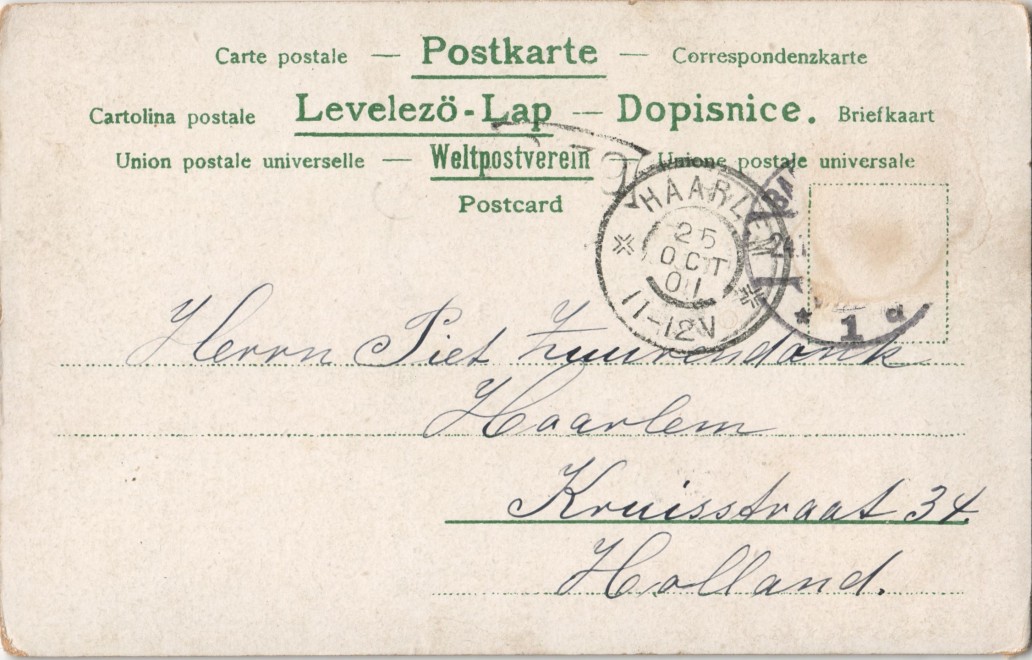 Carte postale — Postkarte — Correspondenzkarte
Cartolina postale Levelezö-Lap — Dopisnice. Briefkaart
Union postale universelle — Weltpostverein — Unione postale universale
Postcard
HAARLEM
25
OCT
01
11-12V
BA
24.
* 1 d
Herrn Piet Zuurendonk
Haarlem
Kruisstraat 34
Holland.